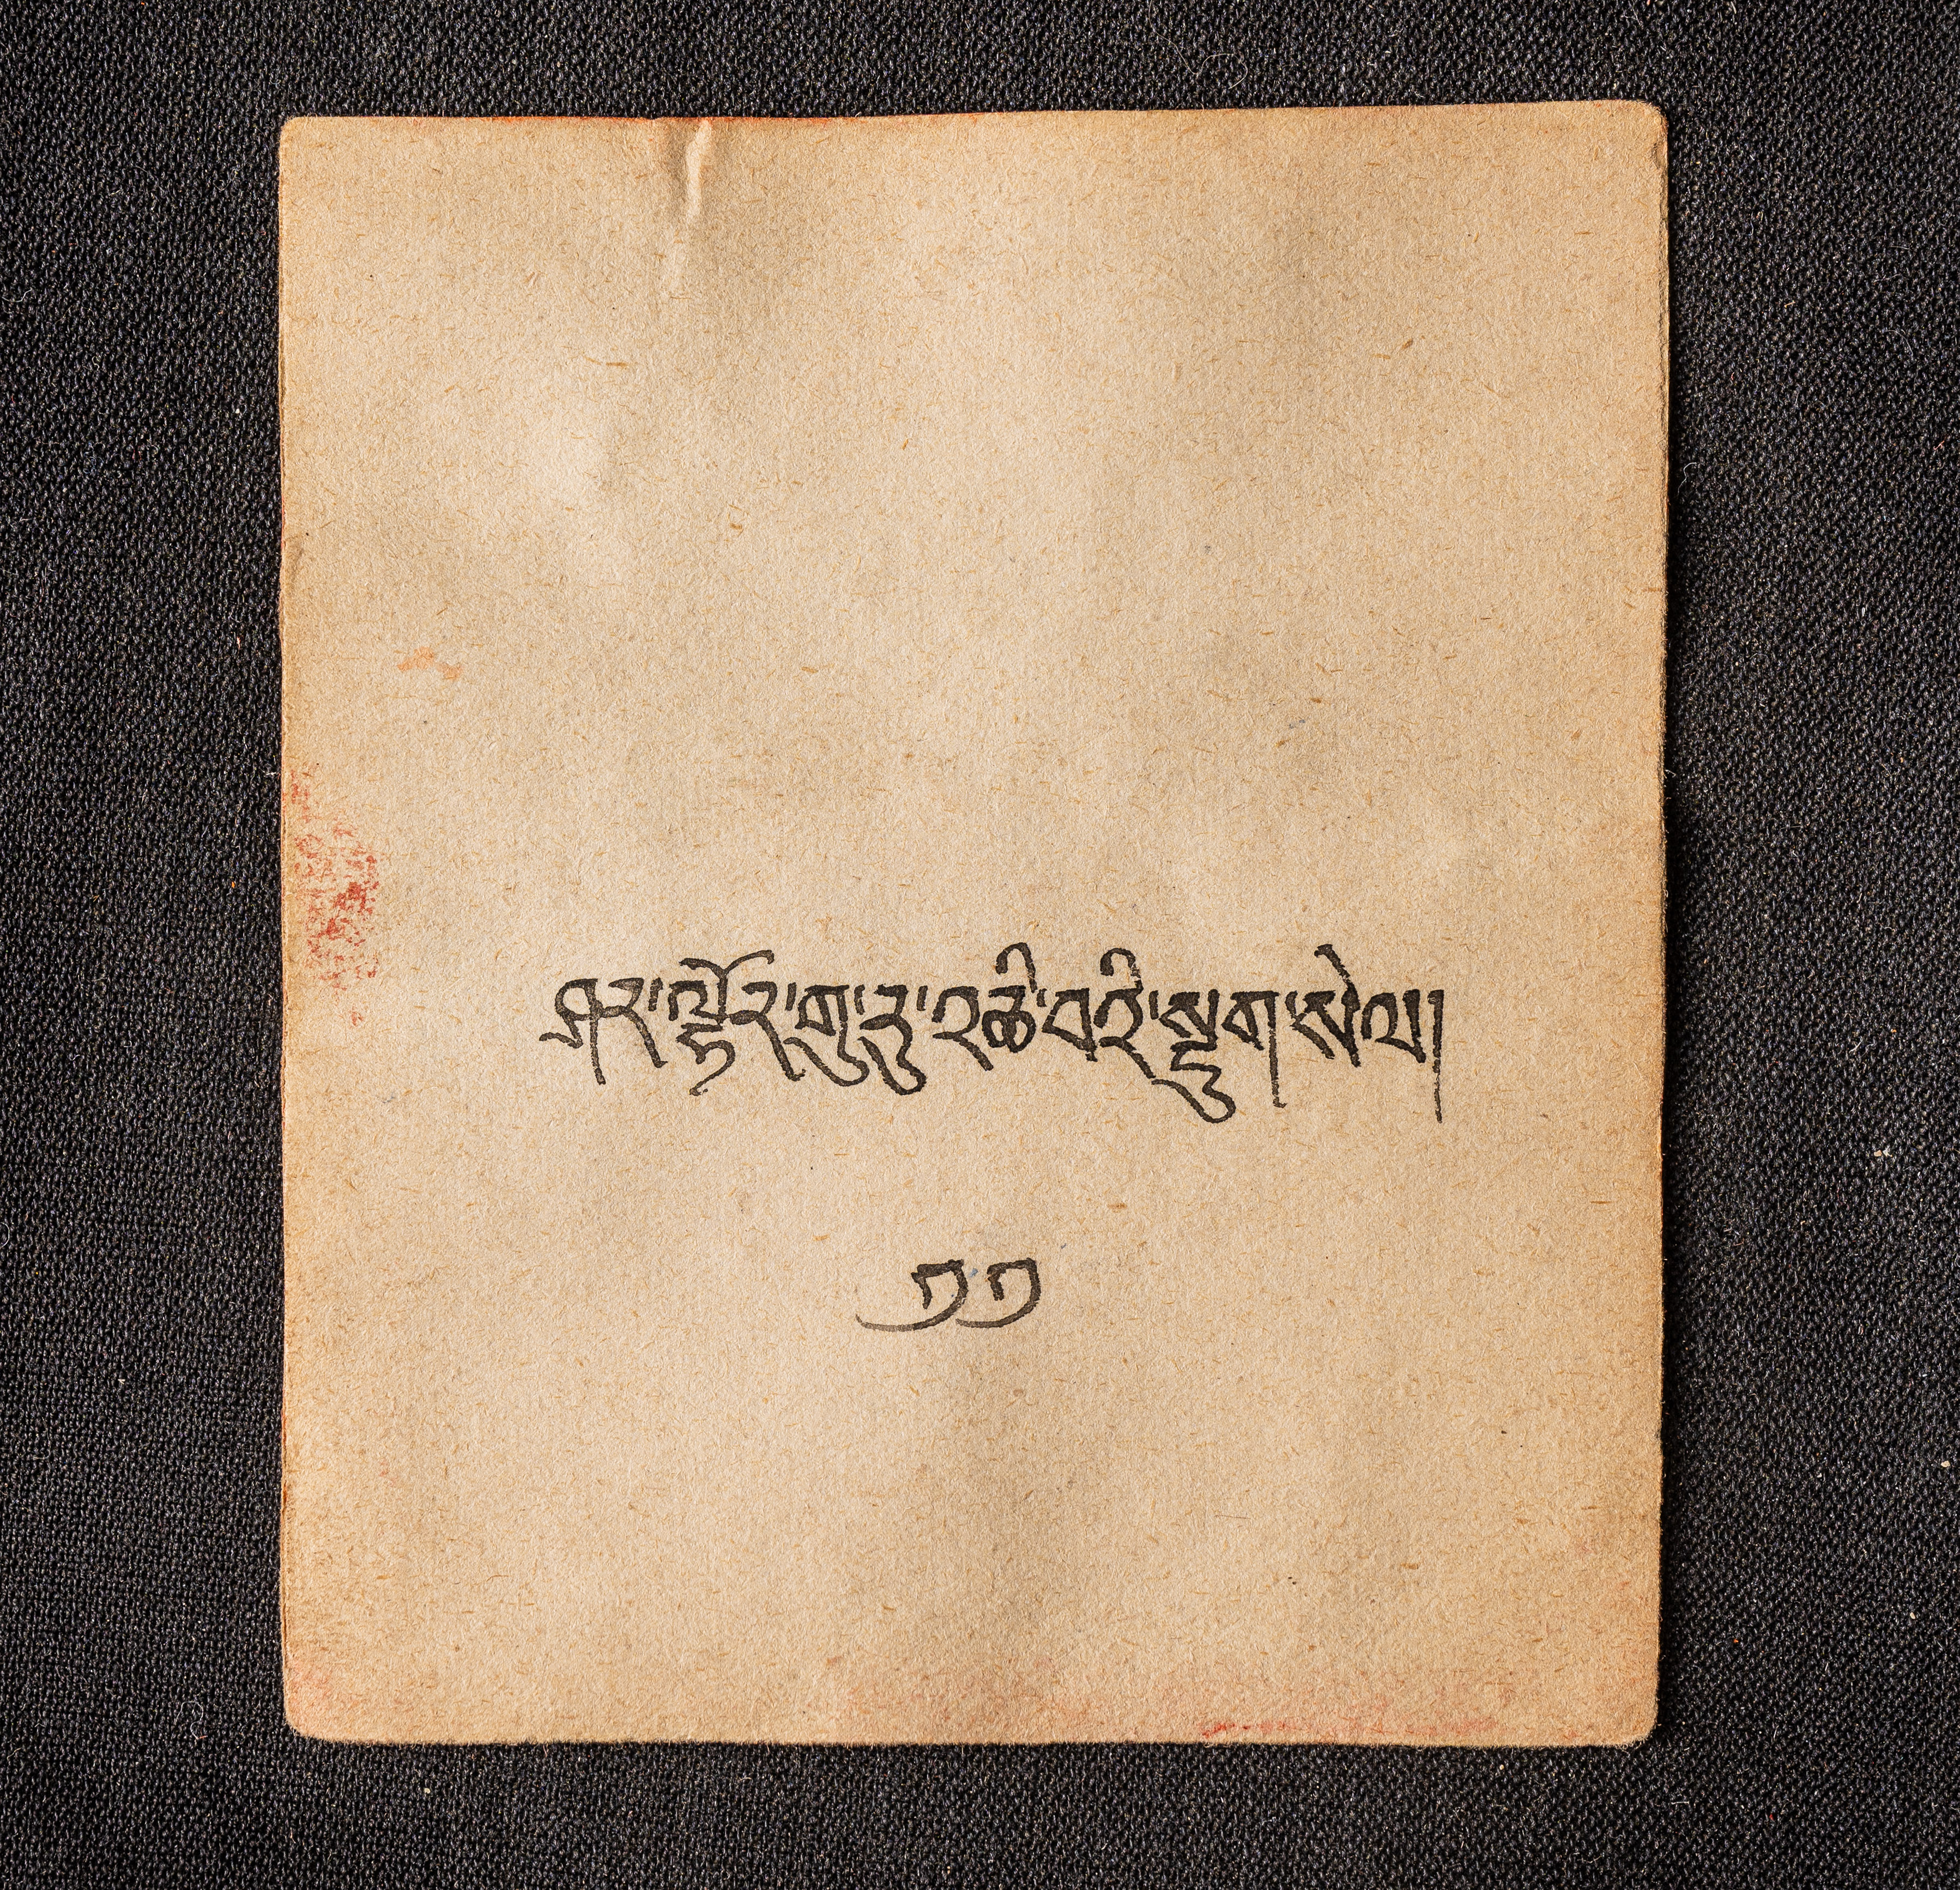 ཤར་ལྷོར་གུ་རུ་འཆི་བའི་སྡུག་སེལ།
༡༡